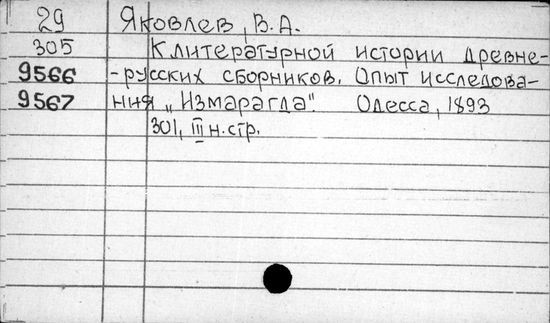 29 Яковлев, В.А.
305 К литературной истории древне-
9566 -русских сборников. Опыт исследова-
9567 ния „Измарагда". Одесса, 1893
301, III н.стр.